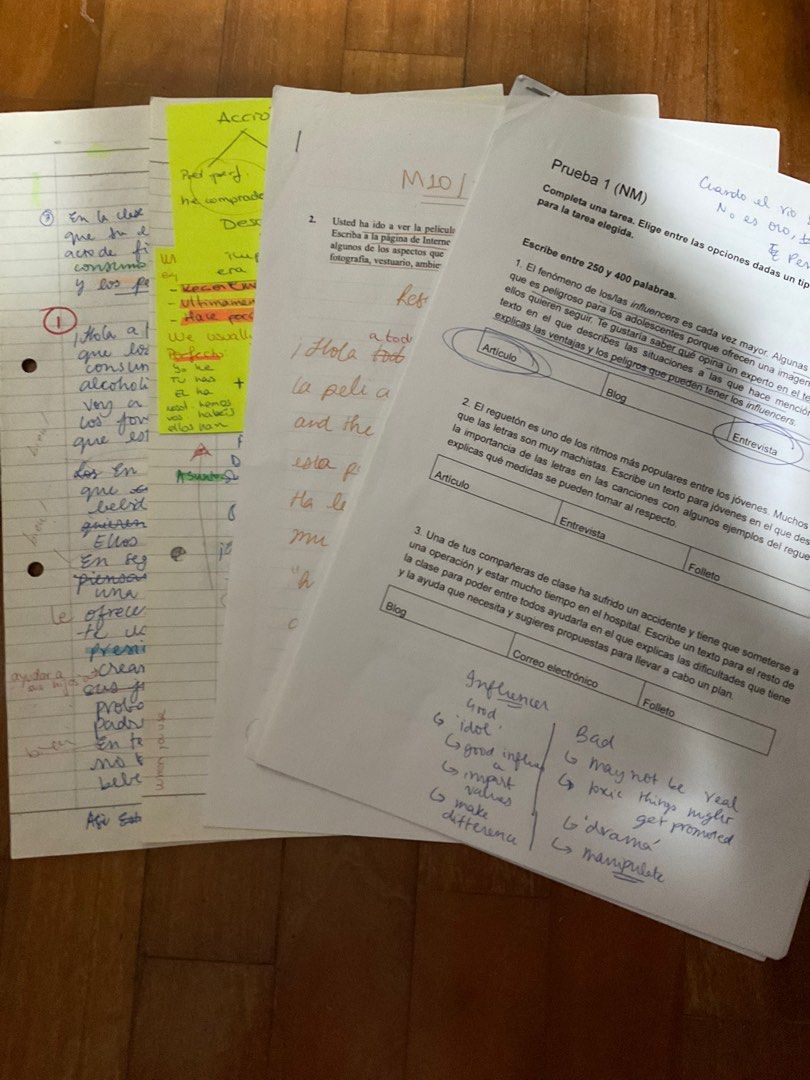 ② En la clase
que su e
acto de fi
consumo
y los pe
1
¡Hola a
que los
consum
alcohol
voy a
los jov
que est
Los En
que
bebid
quieren
Ellos
En seg
piensan
una
le ofrece
te
presi
ayudar a crear
sus hijos sus
probo
padre
En te
no
bebe
Así Est
when you use
Acció
Pret perf.
he comprado
Desc
imp
era
- Recientem
- Ultimamen
- Hace poco
We usually
Perfecto:
Yo he
Tu has +
El ha
nosot. hemos
vos. habeis
ellos han
Asunto
M10/
2. Usted ha ido a ver la película
Escriba a la página de Interne
algunos de los aspectos que
fotografía, vestuario, ambie
a tod
¡Hola Tod
la peli a
and the
esta p
Ha le
mu
"h
Cuando el río
No es oro,
Prueba 1 (NM)
Completa una tarea. Elige entre las opciones dadas un tip
para la tarea elegida.
Escribe entre 250 y 400 palabras.
1. El fenómeno de los/las influencers es cada vez mayor. Algunas
que es peligroso para los adolescentes porque ofrecen una imagen
ellos quieren seguir. Te gustaría saber qué opina un experto en el te
texto en el que describes las situaciones a las que hace menció
explicas las ventajas y los peligros que pueden tener los influencers.
Artículo
Blog
Entrevista
2. El reguetón es uno de los ritmos más populares entre los jóvenes. Muchos
que las letras son muy machistas. Escribe un texto para jóvenes en el que des
la importancia de las letras en las canciones con algunos ejemplos del regue
explicas qué medidas se pueden tomar al respecto.
Artículo
Entrevista
Folleto
3. Una de tus compañeras de clase ha sufrido un accidente y tiene que someterse a
una operación y estar mucho tiempo en el hospital. Escribe un texto para el resto de
la clase para poder entre todos ayudarla en el que explicas las dificultades que tiene
y la ayuda que necesita y sugieres propuestas para llevar a cabo un plan.
Blog
Correo electrónico
Folleto
Influencer
Good
↳ 'idol'
↳ good influen
a
↳ impart
values
↳ make
difference
Bad
↳ may not be real
↳ toxic things might
get promoted
↳ 'drama'
↳ manipulate